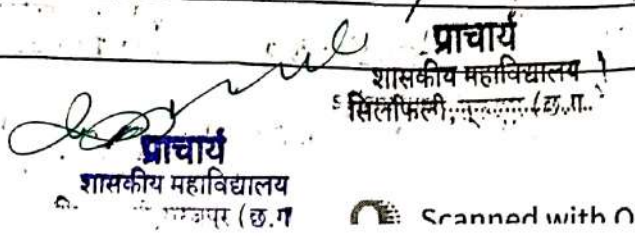 प्राचार्य
शासकीय महाविद्यालय
सिलफिली, (छ.ग.
प्राचार्य
शासकीय महाविद्यालय
(छ.ग
Scanned with O